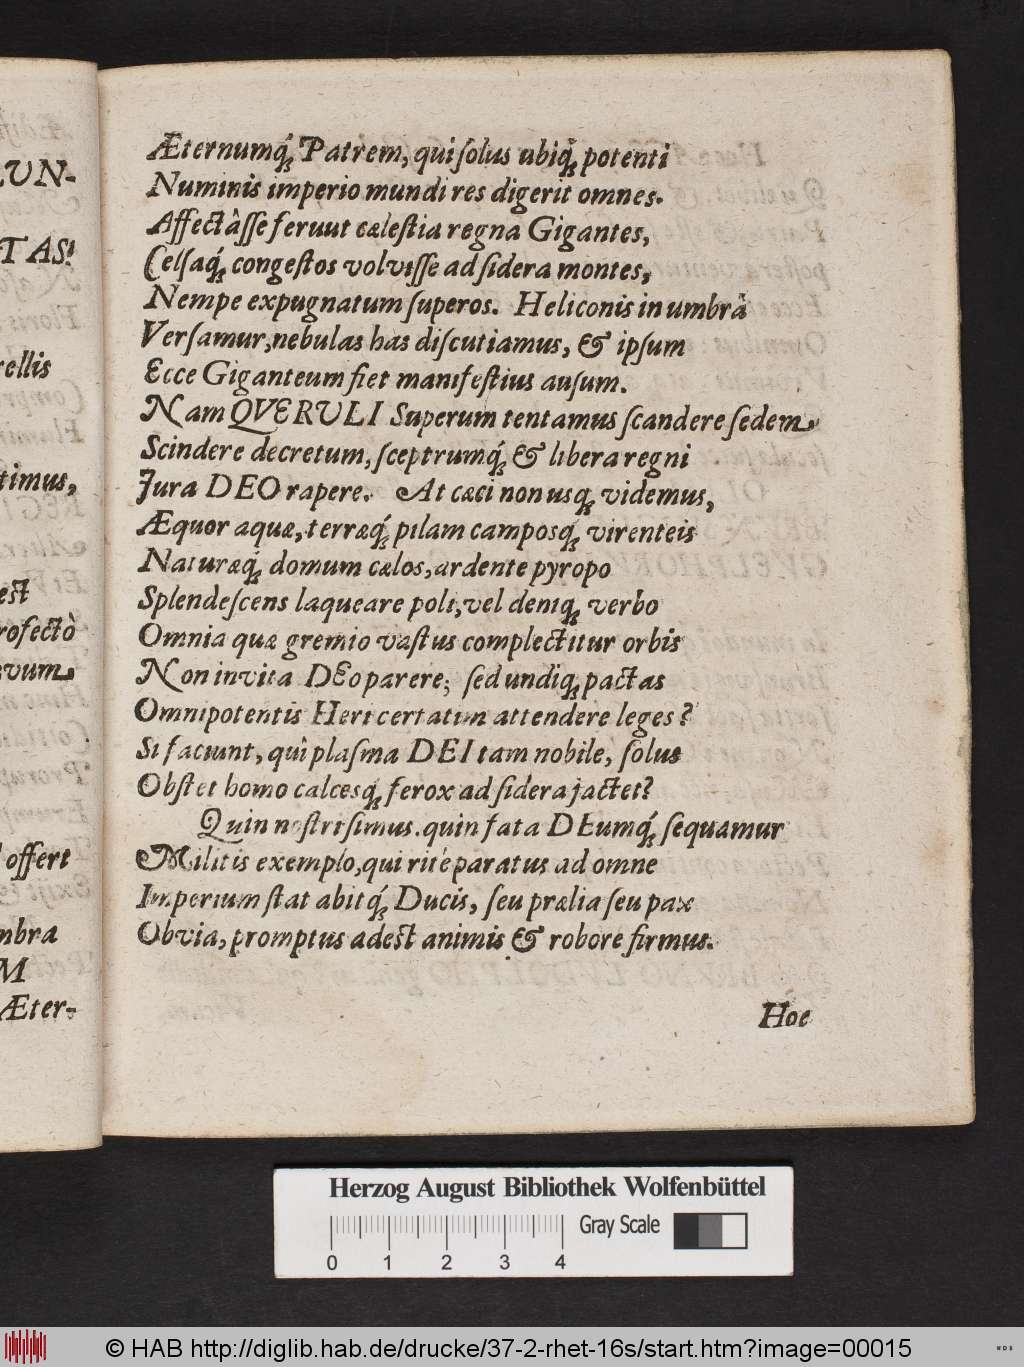 LUN-
TAS!
rellis
timus,
est
rofectò
ævum
offert
mbra
M
Æter-
Æternumq́; Patrem, qui ſolus ubiq́; potenti
Numinis imperio mundi res digerit omnes.
Affectâſſe feruut cæleſtia regna Gigantes,
Celſaq́; congeſtos volviſſe ad ſidera montes,
Nempe expugnatum ſuperos. Heliconis in umbrâ
Verſamur, nebulas has diſcutiamus, & ipſum
Ecce Giganteum fiet manifeſtius auſum.
Nam QVERULI Superum tentamus ſcandere ſedem,
Scindere decretum, ſceptrumq́; & libera regni
Jura DEO rapere. At cæci non usq; videmus,
Æquor aquæ, terræq́; pilam camposq; virenteis
Naturæq́; domum cælos, ardente pyropo
Splendeſcens laqueare poli, vel deniq; verbo
Omnia quæ gremio vaſtus complectitur orbis
Non invita DEo parere; ſed undiq; pactas
Omnipotentis Heri certatim attendere leges?
Si faciunt, quî plaſma DEI tam nobile, ſolus
Obſtet homo calcesq́; ferox ad ſidera jactet?
Quin noſtri ſimus. quin fata DEumq́; ſequamur
Militis exemplo, qui ritè paratus ad omne
Imperium ſtat abitq́; Ducis, ſeu prælia ſeu pax
Obvia, promptus adest animis & robore firmus.
Hoe
Herzog August Bibliothek Wolfenbüttel
Gray Scale
0 1 2 3 4
© HAB http://diglib.hab.de/drucke/37-2-rhet-16s/start.htm?image=00015